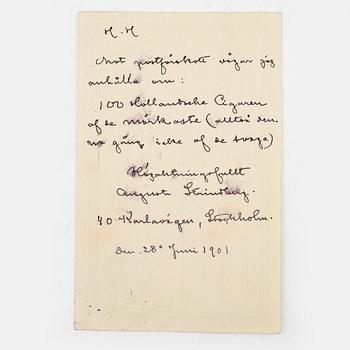 H. H
Mot postförskott vågar jag
anhålla om:
100 Hollandsche Cigarren
af de mörkaste (alltså den-
na gång icke af de svaga)
Högaktningsfullt
August Strindberg.
40 Karlavägen, Stockholm.
Den 28e Juni 1901